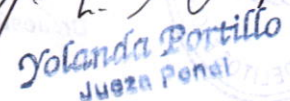 Yolanda Portillo
Jueza Penal